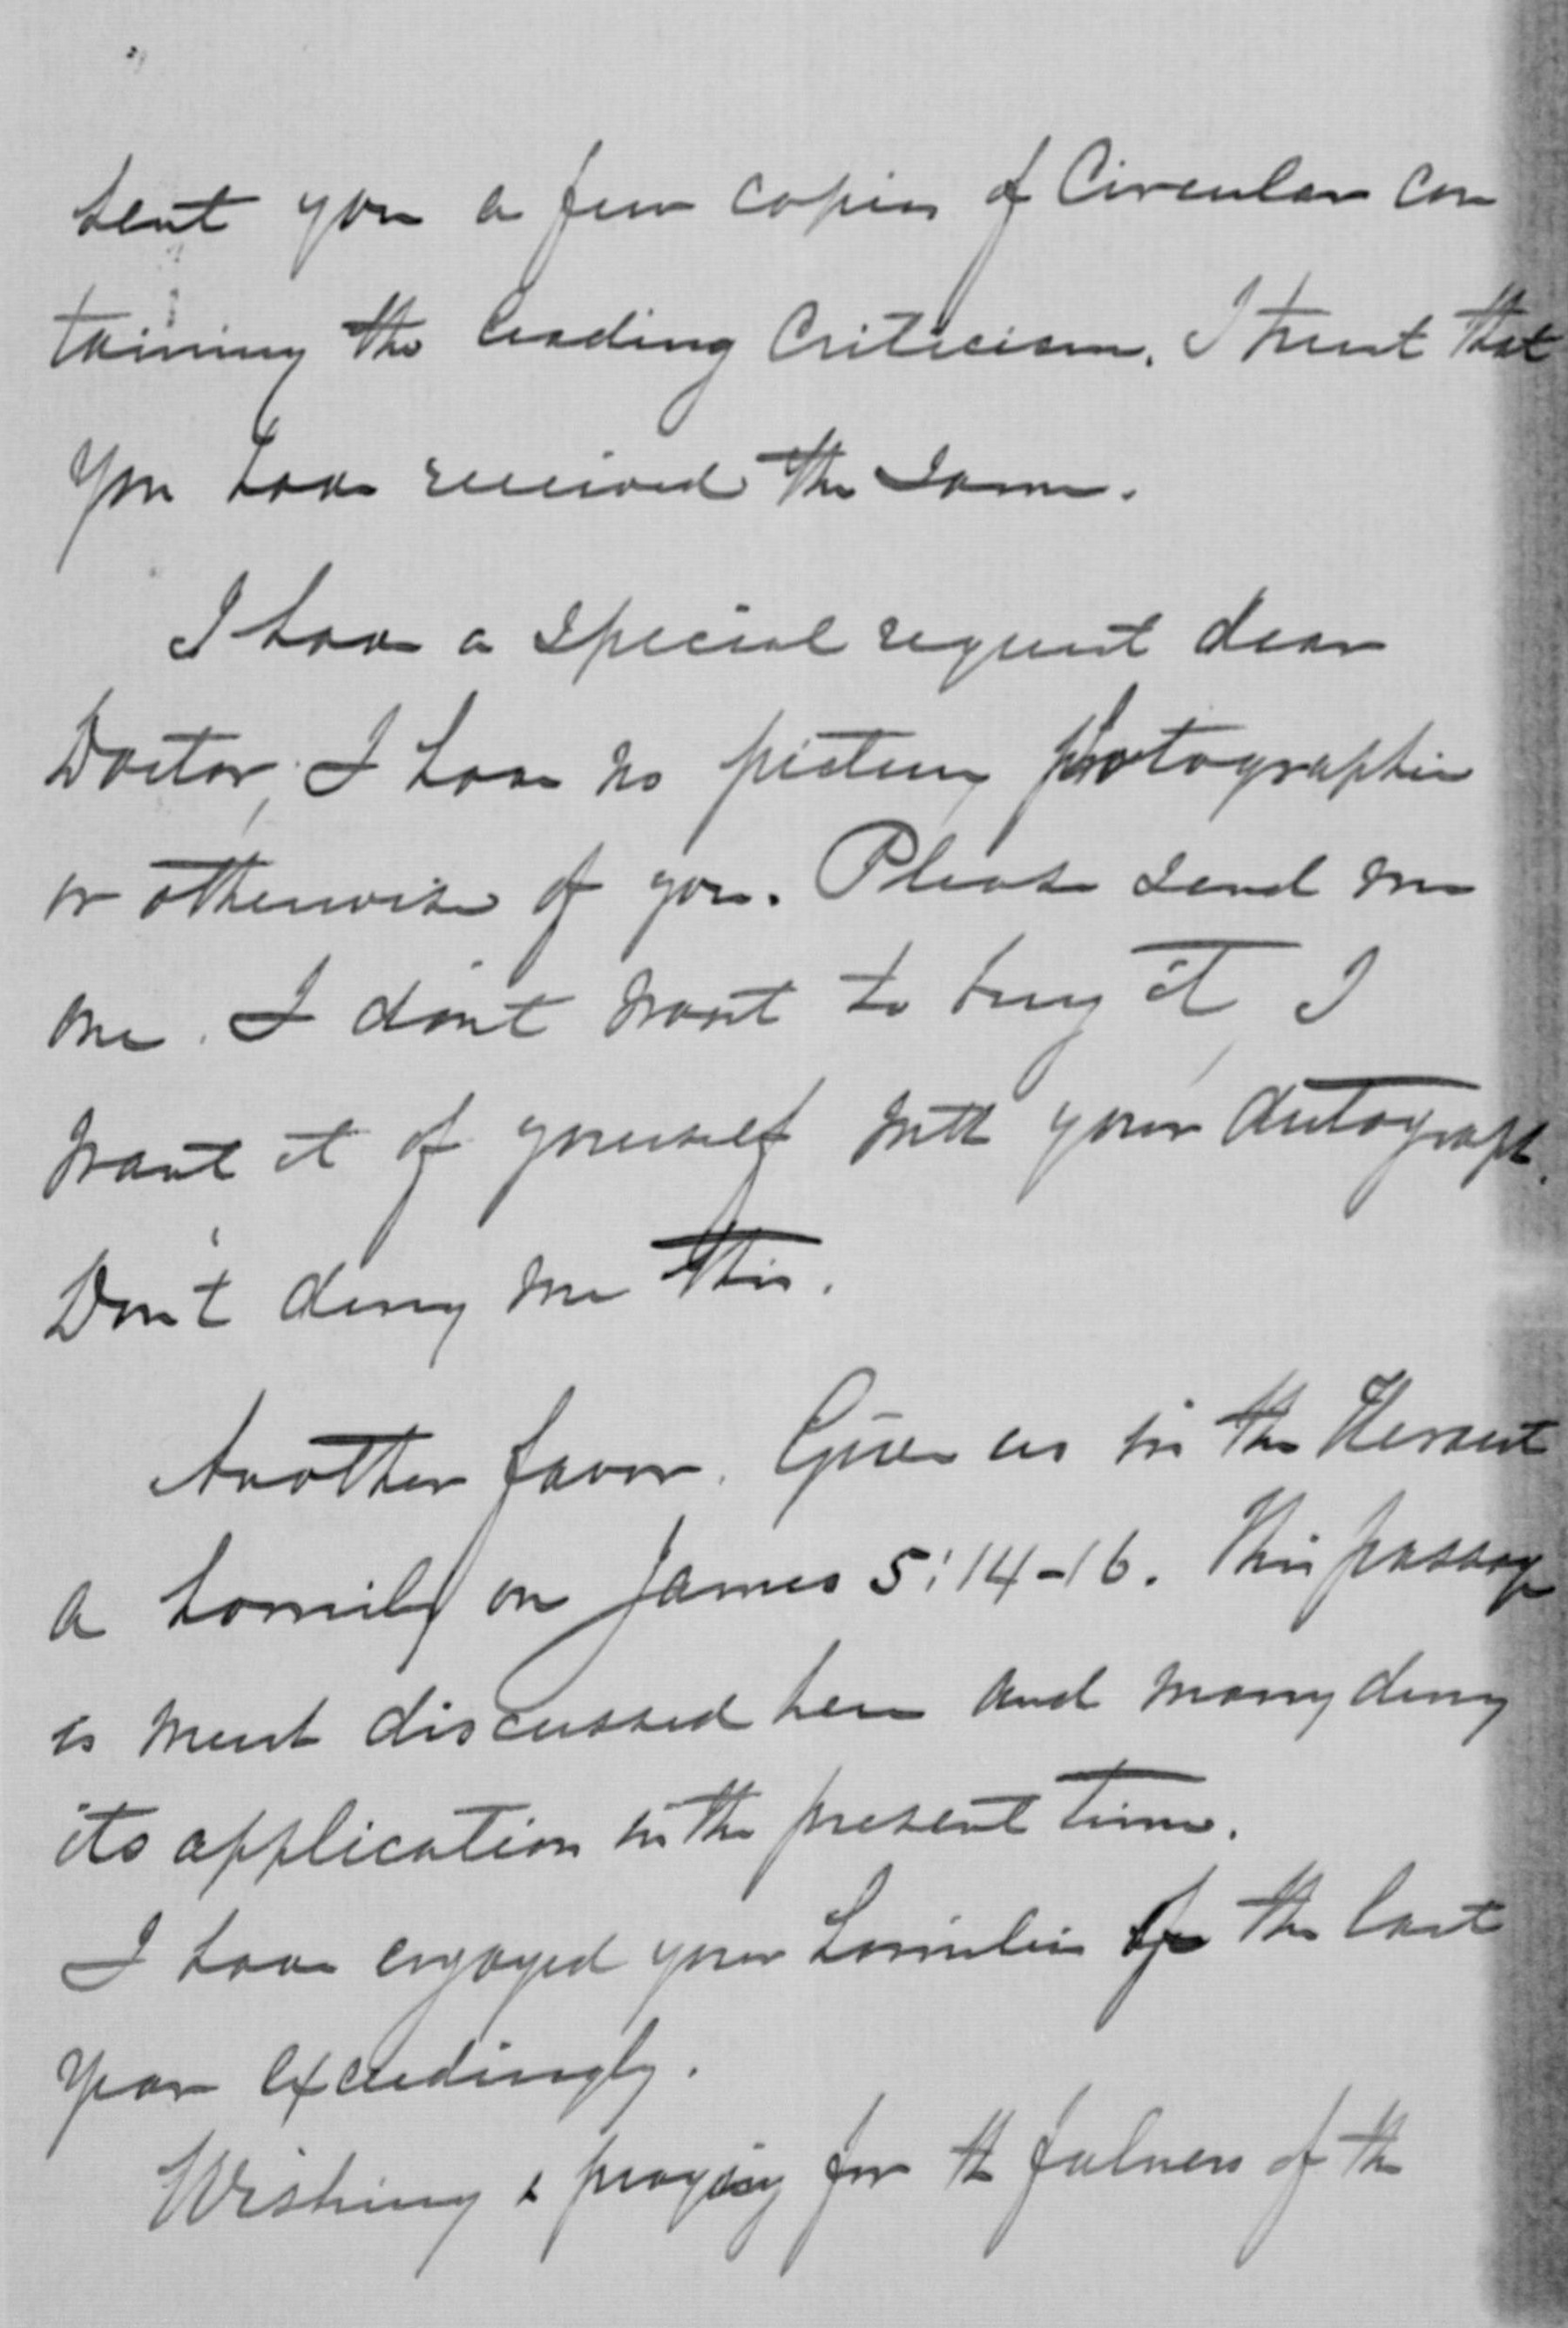 sent you a few copies of Circular con
taining the leading Criticism. I trust that
you have received the same.
I have a special request dear
Doctor, I have no picture, photographic
or otherwise of you. Please send me
one. I don't want to buy it, I
want it of yourself with your Autograph.
Don't deny me this.
Another favor. Give us in the
a homily on James 5:14-16. This passage
is much discussed here and many deny
its application in the present time.
I have enjoyed your homilies of the last
year exceedingly.
Wishing & praying for th fulness of the